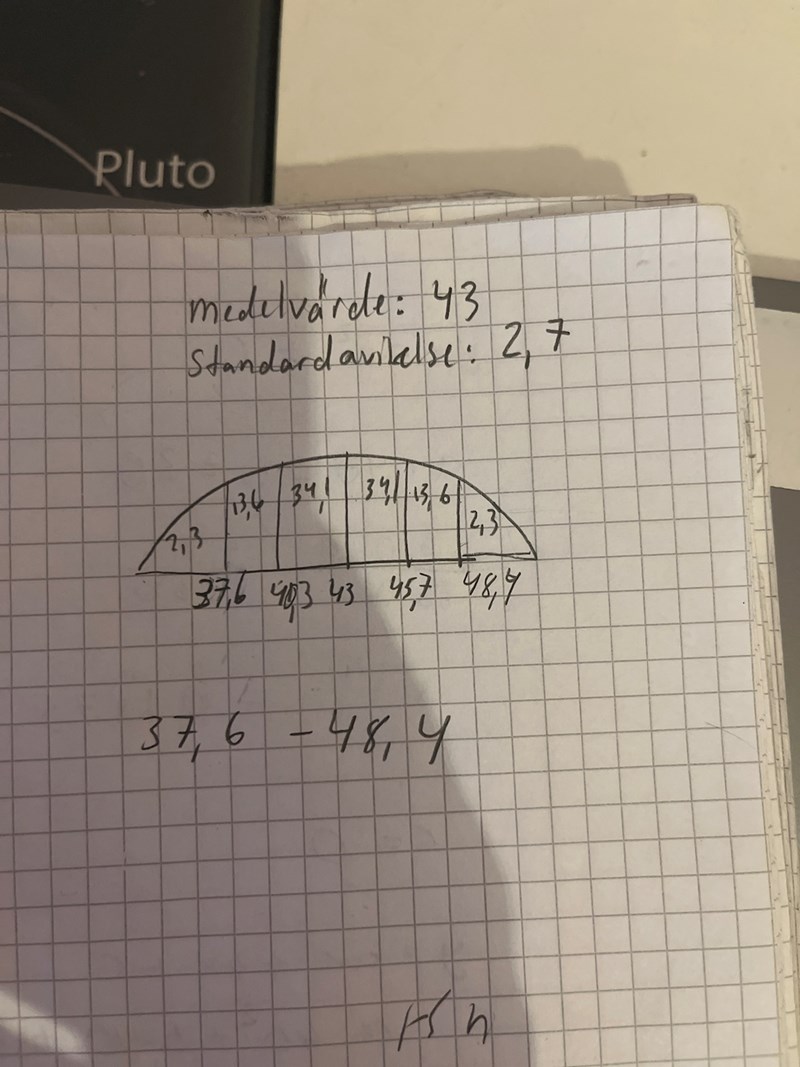 Pluto
medelvärde: 43
Standardavikelse: 2,7
2,3 13,6 34,1 34,1 13,6 2,3
37,6 40,3 43 45,7 48,4
37,6 - 48,4